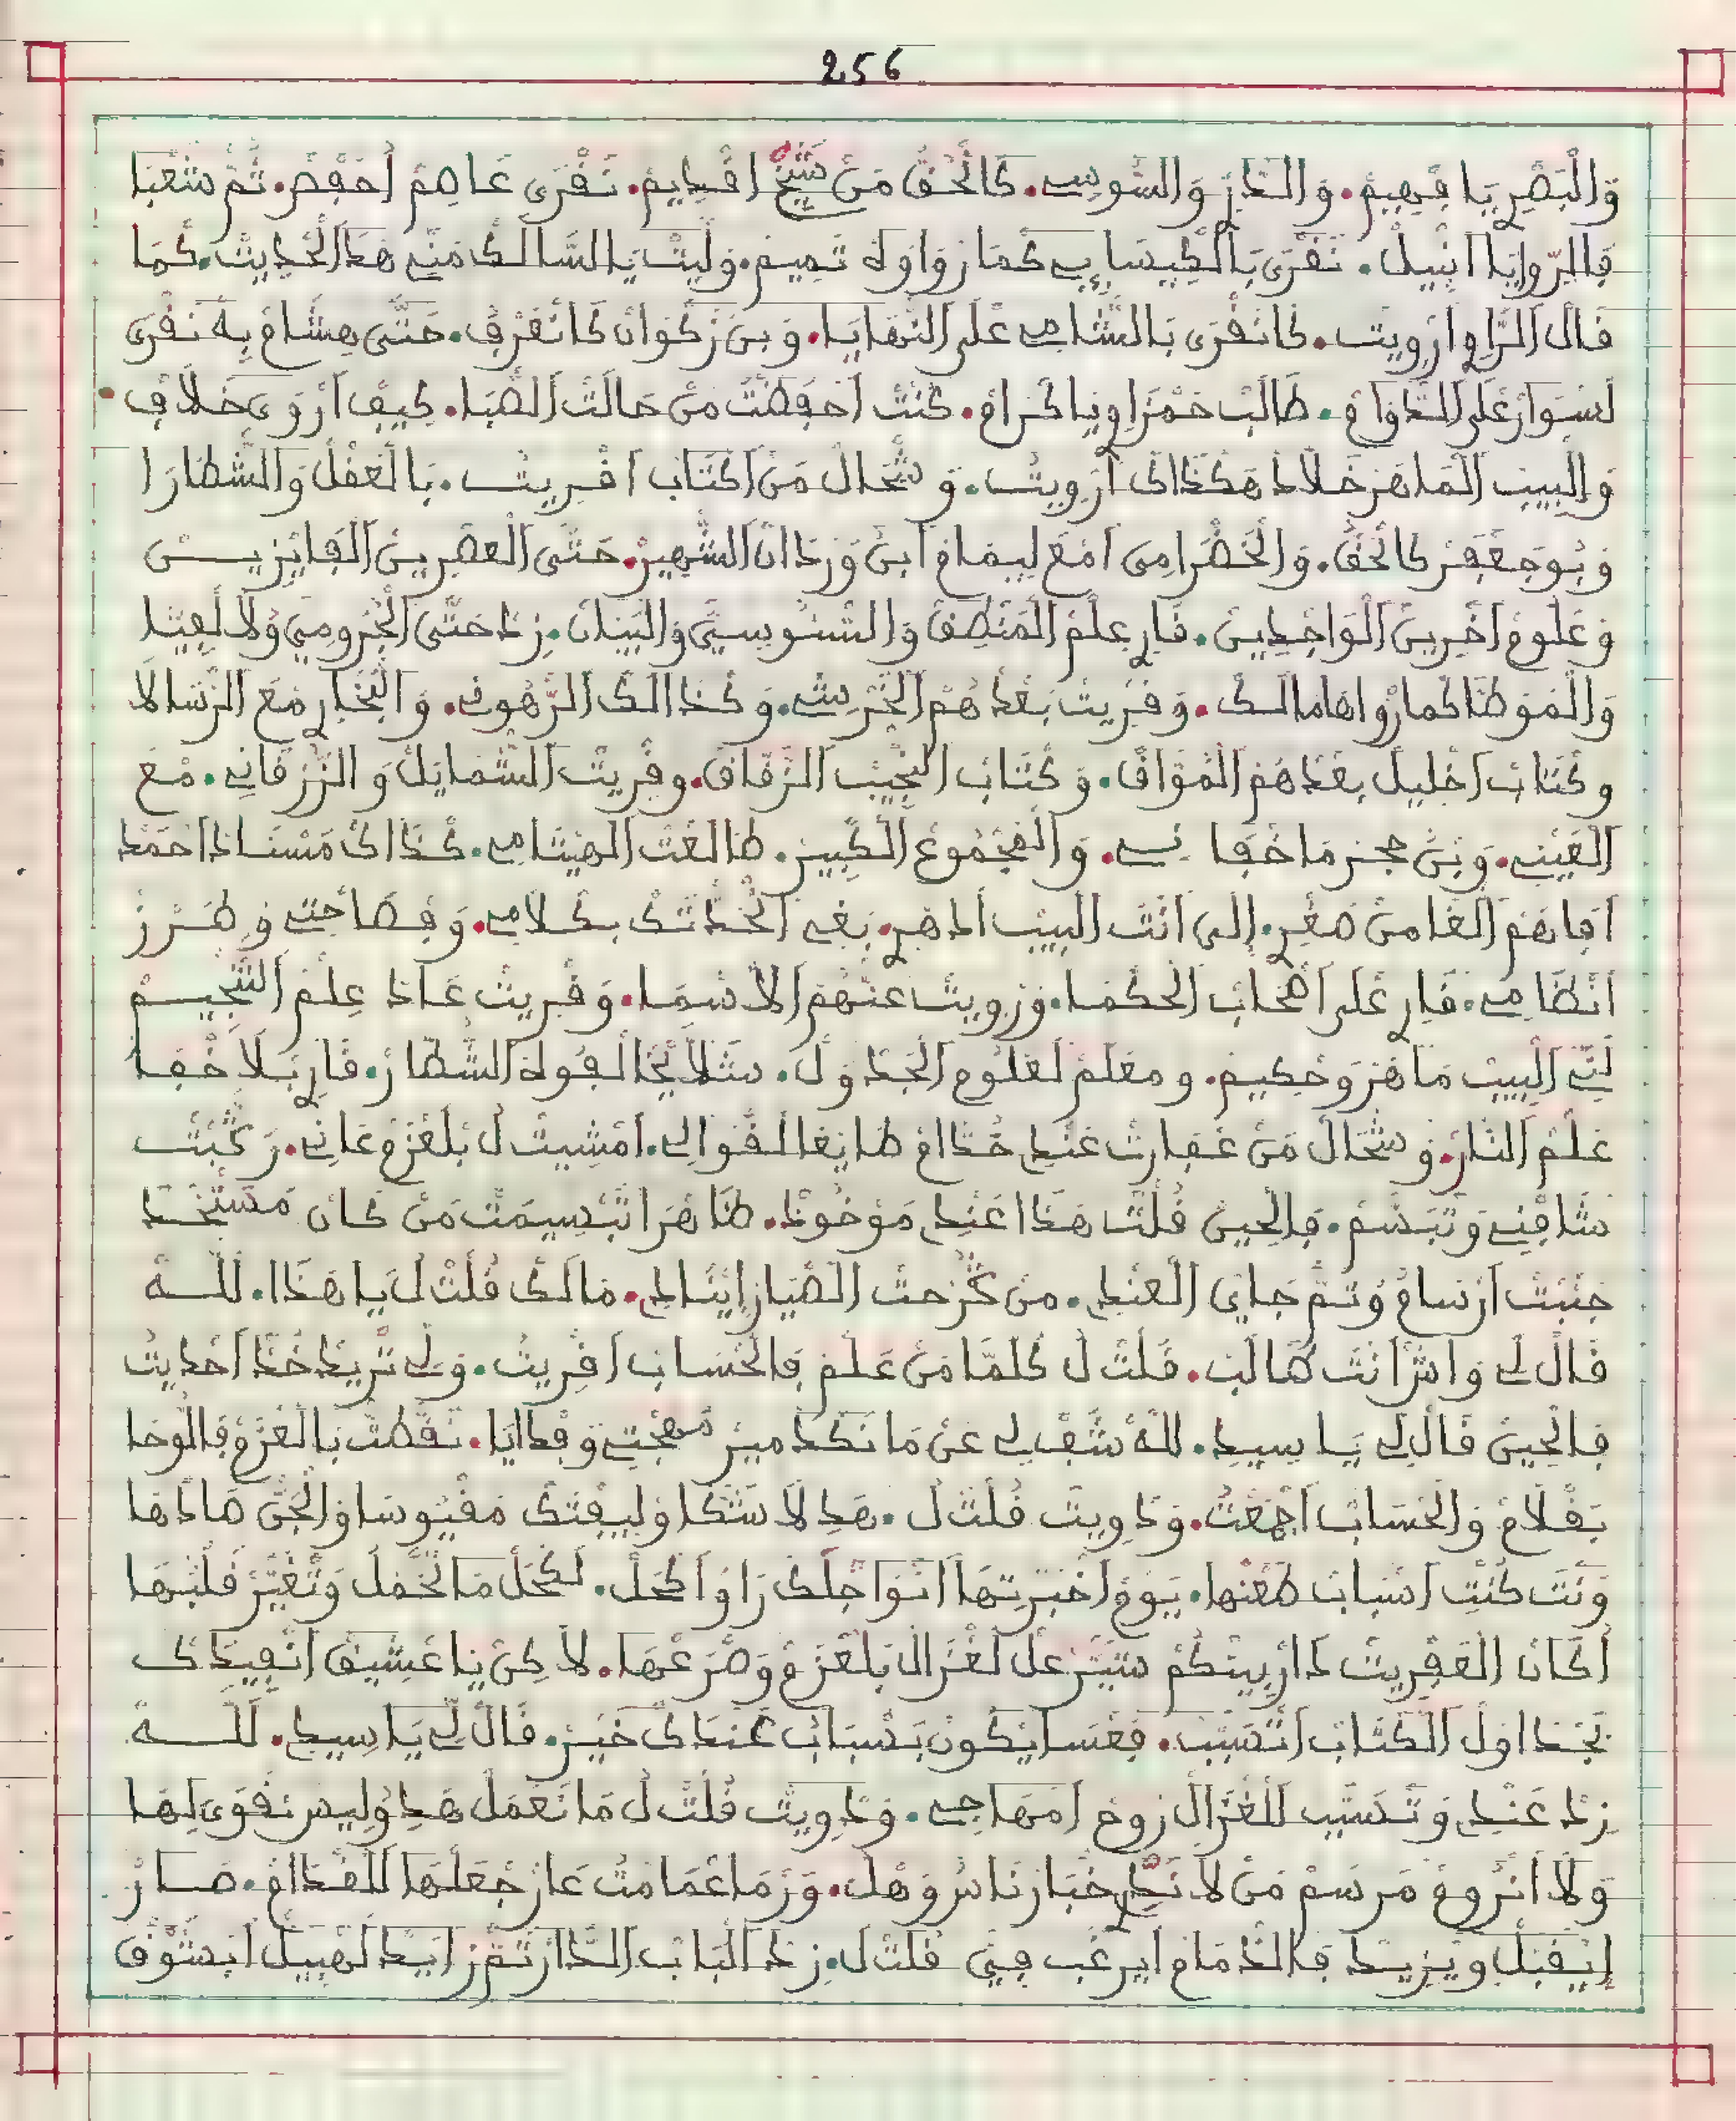 256
وَالْبَصْرِ يَا فِهِيمْ. وَالدَّارِ وَالسُّوسِي. كَالْحُقْ مَنْ شَيْخْ اقْدِيمْ. نَقْرَى عَاصِمْ احَفْصْ. ثُمَّ شَعْبَا
فِالرّوايَا انْبِيلْ. نَقْرَى بَالْكِيسَايِي كْمَا زوَاوَلهْ تَمِيمْ. وَلِيتْ يَالسَّالكْ مَنِّي هَذَ الْحْدِيثْ. كْمَا
قَالْ الرَّاوِ ارْوِيتْ. كَانَقْرَى بَالشَّامِي عْلَى النّهَايَا. وَبِنْ زَكْوَانْ كَانَعْرَفْ. حَتَّى هِشَامْ بِهْ نَقْرَى
لَسْوَارْ عْلَى الدّوَامْ. طَالَبْ حَمْزَا ويَا كْرَامْ. كُنْتْ احْفَظْتْ مَنْ حَالَتْ الصّْبَا. كِيفْ ارْوَى خَلاَفْ
وَالْبِيبْ الْمَاهَرْ خَلاَّدْ هَكْذَاكْ ارْوِيتْ. وَشْحَالْ مَنْ اكْتَابْ اقْرِيتْ. بَالْعَقْلْ وَالشّْطَارَا
وَبُوجَعْفَرْ كَالْحَقْ. وَالْحَضْرَامِى امْعَ لِيمَامْ ابْنْ وَرْدَانْ الشّْهِيرْ. حَتَّى الْعَصْرِينْ الْفَايْزِيــنْ
وَعْلُومْ اخْرِينْ الْوَاجْدِيينْ. قَارِ عِلْمْ الْمَنْطِقْ وَالسّْنُوسِيَّ وَالْبَيَانْ. زِدْ حَتَّى الْجْرُومِي وُلاَ لْعِيَّا
وَالْمُوَطَّا كْمَا رْوَاهَا مَالَكْ. وَقْرِيتْ بَعْدْ هُمْ الْخَرْشِي. وَكْذَالَكْ الرّهُونِي. وَالْبُخَارِ مَعَ الرّسَالاَ
وكْتَابْ اخْلِيلْ بَعْدْهُمْ الْمُوَّاقْ. وَكْتَابْ النّْجِيبْ الزّقَّاقْ. وقْرِيتْ الشّْمَايَلْ وَالزّرْقَانِي. مْعَ
الْعَيْنِي. وَبْنْ حجر مَا خْفَا نِي. وَالْمَجْمُوعْ الْكْبِيرْ. طَالَعْتْ الْهِيتَامِي. كْذَاكْ مَسْنَادْ احْمَدْ
افَاهَمْ الْغَا مَنْ صَغْرِ. اِلَى انْتَ الْبِيبْ اَدْ هِي. بَغِي الْحْدَّتَكْ بكْلاَمِي. وَفْصَاحْتِي وِطَــرْزْ
انْظَامِي. قَارِ عْلَى اصْحَابْ الْحكْمَا. وَرْوِيتْ عَنْهُمْ الاَسْمَا. وَقْرِيتْ عَادْ عِلْمْ التّنْجِيــمْ
لَنِّي الْبِيبْ مَاهَرْ وَحْكِيمْ. ومعَلَّمْ لَعْلُومْ الْجْدَاوَلْ. سَتْلاَيْحَا لْقُولهْ الشّْطَارْ. قَارِ بَلاَ خْفَا
عْلَمْ النَّارْ. وشْحَالْ مَنْ عَفَارَتْ عَنْدِي خُدَّامْ طَايْعَا لَقْوَالِي. امْشِيتْ لُ بَلْعَزْمْ عَانِي. رَكْبَتْ
شَافْنِي وَتْبَسَّمْ. فِالْحِينْ قُلْتْ هَذَا عَنْدِ مَوْخُوذْ. ظَاهْرَا تَبْسِيمَتْ مَنْ كَانْ مَسْتْحَــدْ
جْنَبْتْ ارْسَامْ وْتَمْ جَايْ الْعَنْدِي. مَنْ كُرْحتْ الصّْيَارْ ايْنَادِي. مَالَكْ قُلْتْ لَ يَا هَذَا. لَلَّــهْ
قَالْ لِي وَاشْ انْتَ طَالَبْ. قَلْتْ لُ كْلمَّا مَنْ عَلْمْ فِالْحْسَابْ اقْرِيتْ. وَلِي تْرِيدْ خُدْ احْدِيثْ
فِالْحِينْ قَالْ لِي يَا سِيدِ. لَلَّهْ شُفْ لِي عَنْ مَا نَكَدْ مِيرْ مُهْجْتِي وَفْدَايَا. نَقَّطْتْ بَالْعَزْمْ فَاللُّوحَا
بَقْلاَمْ وَالْحَسَابْ اجْمَعْتُ. وَدْوِيتْ قُلْتْ لُ. هَدِ لاَ سَتْكَا وَلِيعْتَكْ مَقْيُوسَا وَالْجَنّْ صَادْهَا
وَنْتَ كُنْتِ اسْبَابْ طَعْنْهَا. يَوْمْ اخْبَرْتِهَا انَّوَاجْلَكْ رَاوْ اكْحَلْ. لَكْحَلْ مَا لْحْفَلْ وَتْغَيَّرْ قَلْبْهَا
اكَانْ الْعَفْرِيتْ دَارْ بِينْكُمْ سَتْرَ عْلْ لَغْزَالْ بَلْعَزْمْ وَصَرْعْهَا. لاَكِنْ يَا عَشِيقْ انْفِيدَكْ
بَجْدَاوَلْ الْكْتَابْ انْسَبَّبْ. فَعْسَا يْكُونْ بَسْبَابْ عَنْدَكْ خَيْرْ. قَالْ لِي يَا سِيدِي. لَلَّــهْ
زِدْ عَنْدِي وَتْسَبَّبْ لَلْغْزَالْ زوحْ امْهَاجِي. وَدْوِيتْ قُلْتْ لُ مَا نَعْمَلْ هَدِ وُلِيسْ نَقْوَى لهَا
وَلاَ انْرُومْ مَرْسَمْ مَنْ لاَ نَدْرِي خْبَارْ نَاسُ وَهْلُ. وَرْمَا عْمَامْتُ عَارْ جْعَلْهَا لَلْقْدَامْ. صَــارْ
اِيْقَبَّلْ ويْزِيــدْ فِالدّْمَامْ ايْرغَّبْ فِيَّ قُلْتْ لُ. زِدْ الْبَابْ الدَّارْ تَمّْ زَايَدْ لَهْبِيلْ ايْشَوَّفْ